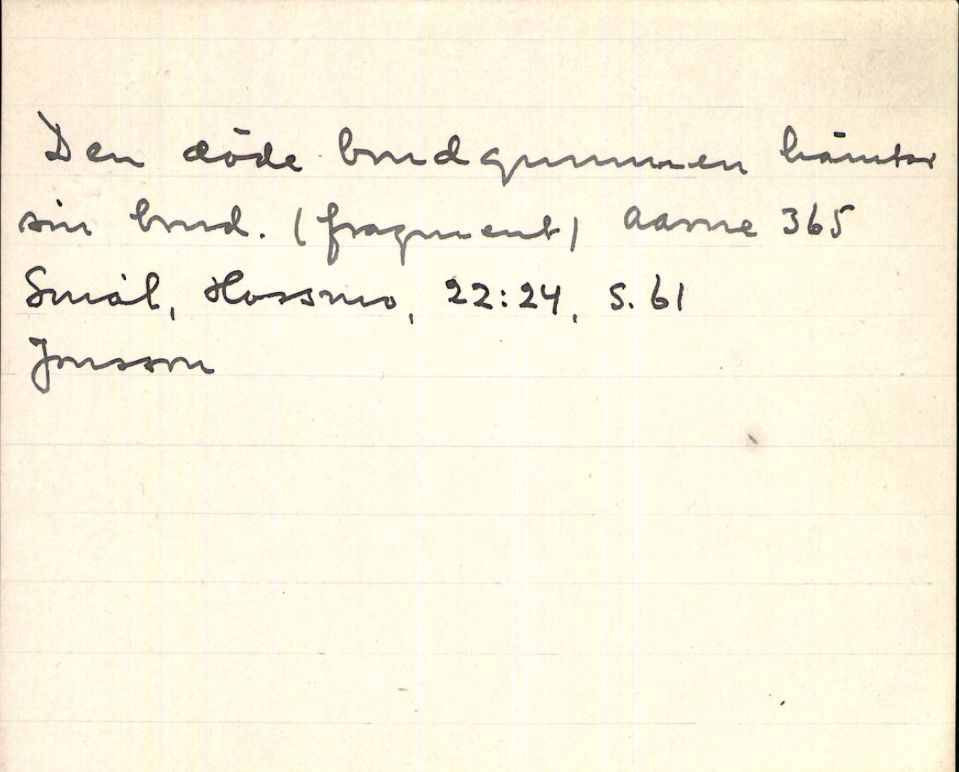 Den döde brudgummen hämtar
sin brud. (fragment) Aarne 365
Smål, Hossmo, 22:24, S. 61
Jonsson